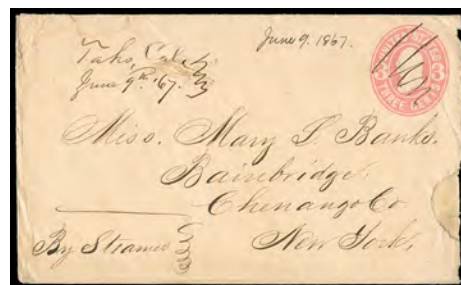 June 9. 1867.
Taho, Cala
June 9th '67.
UNITED STATES
3 3
THREE CENTS
Miss. Mary S. Banks.
Bainbridge.
Chenango Co
New York.
By Steamer